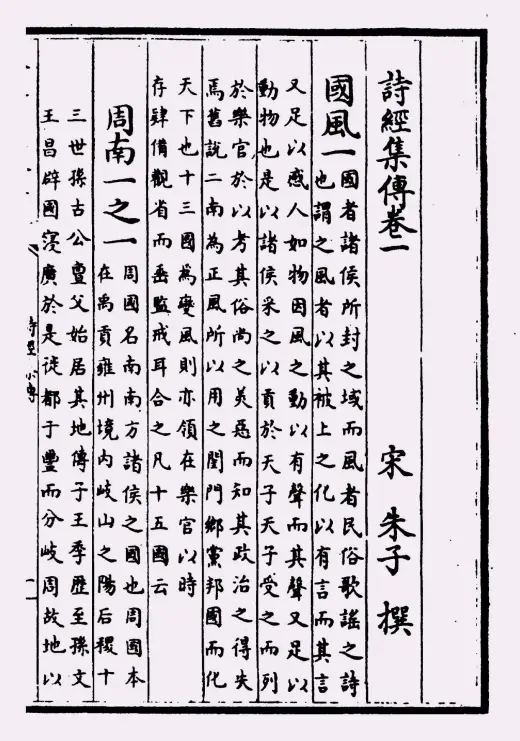 詩經集傳卷一
宋 朱子 撰
國風一國者諸侯所封之域而風者民俗歌謠之詩
也謂之風者以其被上之化以有言而其言
又足以感人如物因風之動以有聲而其聲又足以
動物也是以諸侯采之以貢於天子天子受之而列
於樂官於以考其俗尚之美惡而知其政治之得失
焉舊說二南為正風所以用之閨門鄉黨邦國而化
天下也十三國為變風則亦領在樂官以時
存肄備觀省而垂監戒耳合之凡十五國云
周南一之一周國名南南方諸侯之國也周國本
在禹貢雍州境內岐山之陽后稷十
三世孫古公亶父始居其地傳子王季歷至孫文
王昌辟國寖廣於是徙都于豐而分岐周故地以